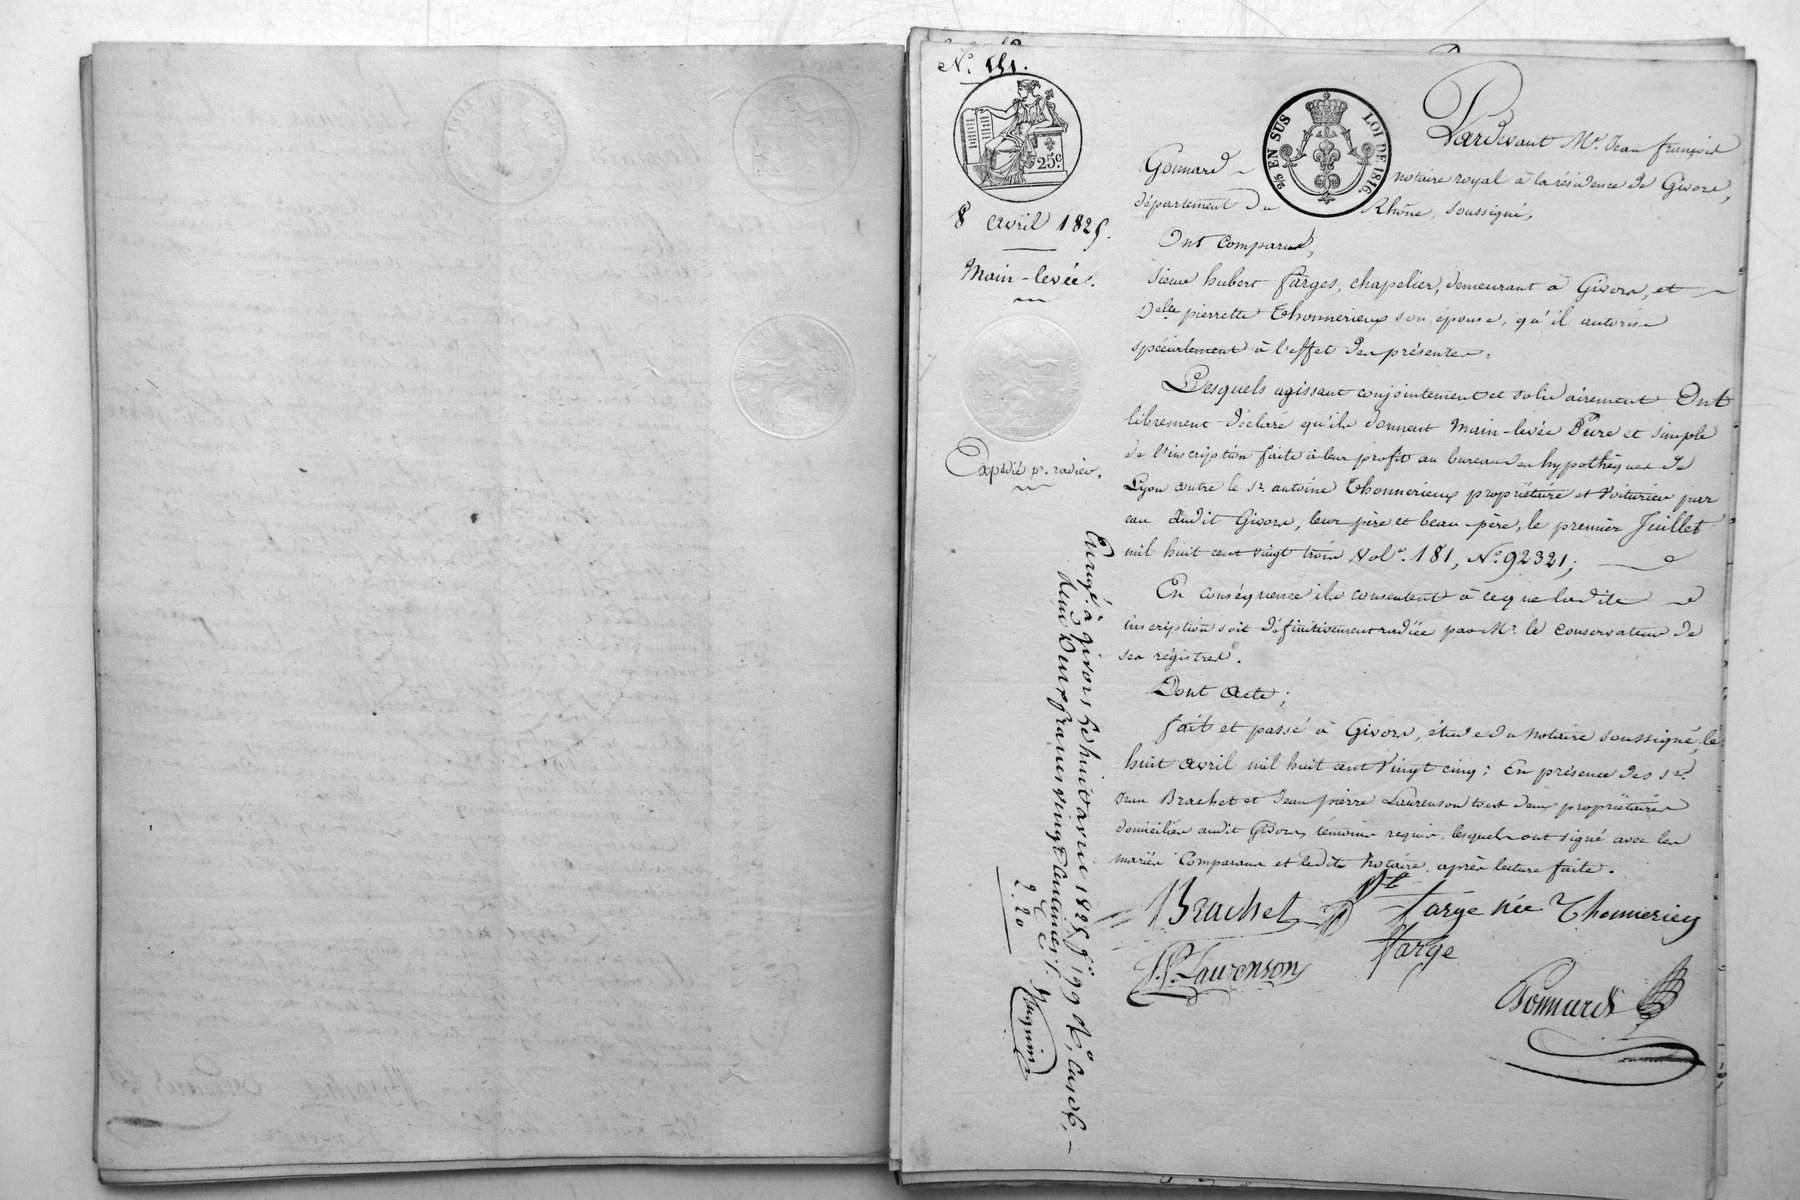 N.° 151.
25.c
2/5 EN SUS
LOI DE 1816.
8 avril 1825.
Main-levée.
Expédié pr. radier.
Pardevant Me. Jean françois
Gonnard notaire royal à la résidence de Givors,
département du Rhône, soussigné,
Ont comparu,
Sieur hubert farges, chapelier, demeurant à Givors, et
Delle pierrette Thonnerieux son épouse, qu'il autorise
spécialement à l'effet des présentes.
Lesquels agissant conjointement et solidairement Ont
librement déclaré qu'ils donnent Main-levée Pure et simple
de l'inscription faite à leur profit au bureau des hypothèques de
Lyon contre le Sr. antoine Thonnerieux propriétaire et Voiturier par
eau audit Givors, leur père et beau-père, le premier Juillet
mil huit cent vingt trois Vole. 181, N.° 92321;
En conséquence ils consentent à ce que ladite
inscription soit définitivement radiée par Mr. le conservateur de
ses régistres.
Dont Acte;
fait et passé à Givors, étude du Notaire soussigné, le
huit avril mil huit cent Vingt cinq; En présence des srs.
Jean Brachet et Jean pierre Laurenson tous deux propriétaires
domiciliés audit Givors témoins requis, lesquels ont signé avec les
mariés Comparans et ledit Notaire, après lecture faite.
Brachet
pte farge née Thonnerieux
J.P. Laurenson
farge
Gonnard
Enregé. à Givors le huit avril 1825 f° 199 Ro. Cases,
deux francs vingt centimes
2.20